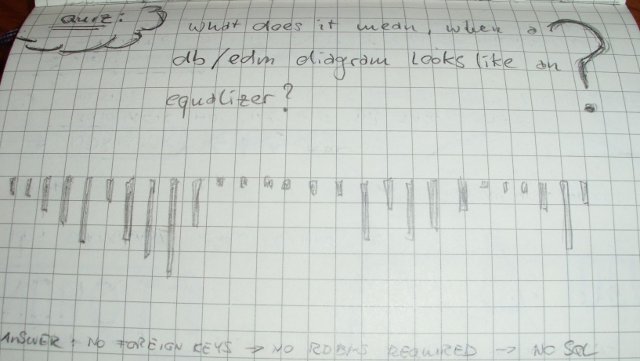 Quiz:
What does it mean, when a
db/edm diagram looks like an
equalizer?
?
ANSWER: NO FOREIGN KEYS → NO RDBMS REQUIRED → NO SQL